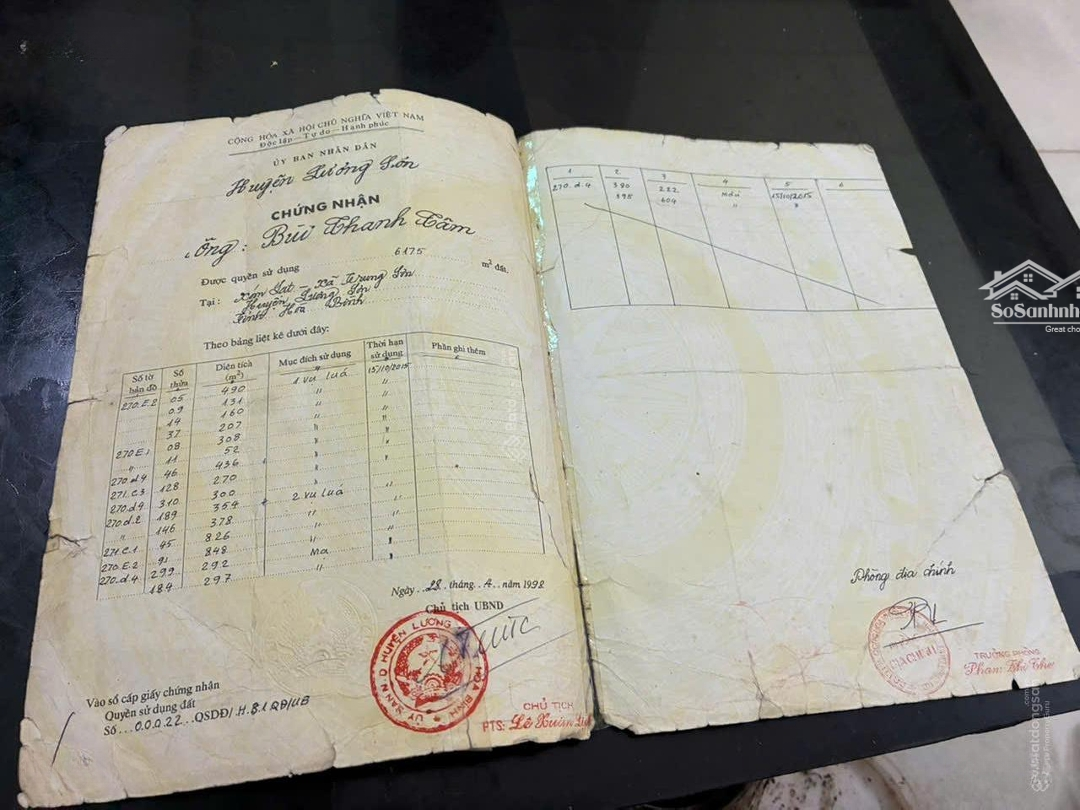 CỘNG HÒA XÃ HỘI CHỦ NGHĨA VIỆT NAM
Độc lập – Tự do – Hạnh phúc
ỦY BAN NHÂN DÂN
Huyện Lương Sơn
CHỨNG NHẬN
Ông: Bùi Thanh Tâm
Được quyền sử dụng 6175 m2 đất.
Tại: Xóm Lat – Xã Trung Sơn
Huyện Lương Sơn
Tỉnh Hòa Bình
Theo bảng liệt kê dưới đây:
Số tờ bản đồ Số thửa Diện tích (m2) Mục đích sử dụng Thời hạn sử dụng Phần ghi thêm
270.E.2 05 490 1 vụ luá 15/10/2015
09 131 " "
14 160 " "
37 207 " "
270E1 08 308 " "
" 11 52 "
270 d.4 46 436 "
271.C.3 128 270 "
270.d.4 310 300 2 vụ luá "
270 d.2 189 354 "
" 146 378 " "
271.C.1 45 826 "
270.E.2 91 848 Ma "
270.d.4 299 292 " "
184 297
Ngày 28 tháng 4 năm 1998
Chủ tịch UBND
ỦY BAN N.D HUYỆN LƯƠNG
HÒA BÌNH
CHỦ TỊCH
PTS: Lê Xuân
Vào sổ cấp giấy chứng nhận
Quyền sử dụng đất
Số 00022 QSDĐ/ H.81QĐ/UB
1 2 3 4 5 6
270.d.4 380 222 15/10/2015
395 604 " "
Phòng địa chính
TRƯỞNG PHÒNG
Phan
SoSanhnh
Great cho